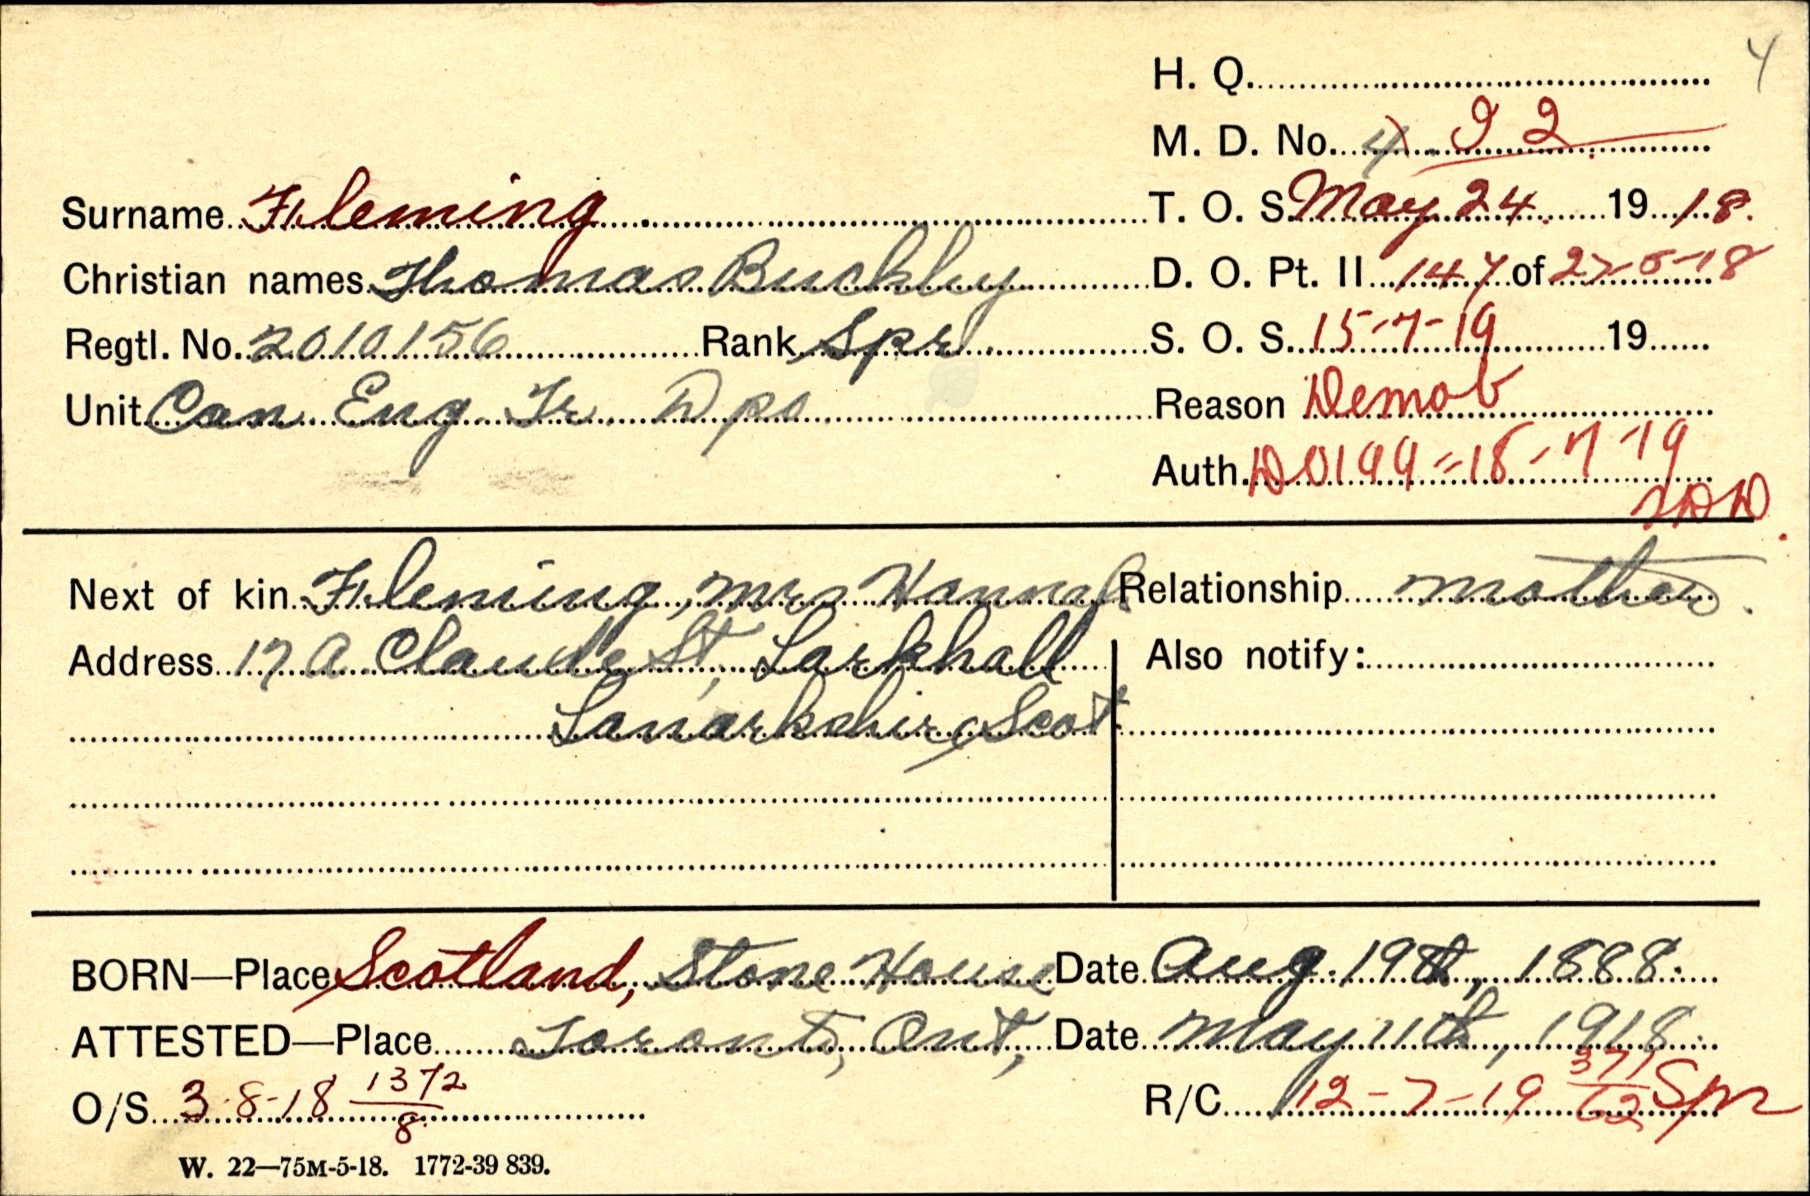 H. Q. 4
M. D. No. 4 . 2
Surname Fleming T. O. S. May 24. 19 18.
Christian names Thomas Buckley D. O. Pt. II 147 of 27-5-18
Regtl. No. 2010156 Rank Spr S. O. S. 15-7-19 19
Unit Can Eng Tr Dpo Reason Demob
Auth. DO199=18-7-19
DD
Next of kin Fleming, Mrs Hannah Relationship mother.
Address 17A Claude St, Larkhall Also notify:
Lanarkshire, Scot
BORN—Place Scotland, Stone House Date Aug. 19th, 1888.
ATTESTED—Place Toronto, Ont, Date May 11th, 1918.
O/S 3-8-18 1372/8 R/C 12-7-19 371/62 Spr
W. 22—75M-5-18. 1772-39 839.